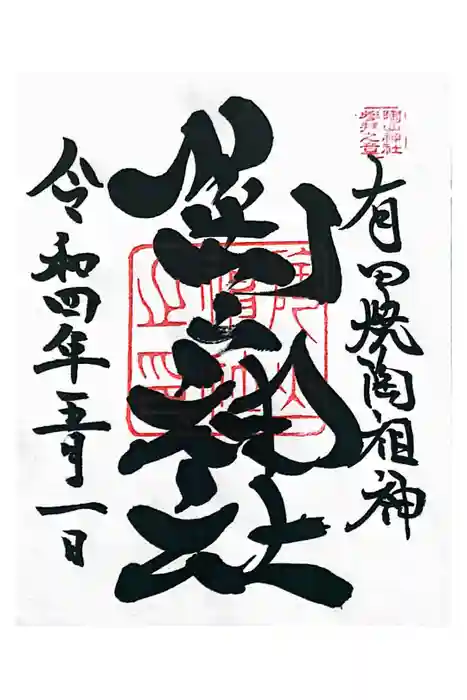 陶山神社
参拝之章
有田焼陶祖神
陶山神社
令和四年五月一日